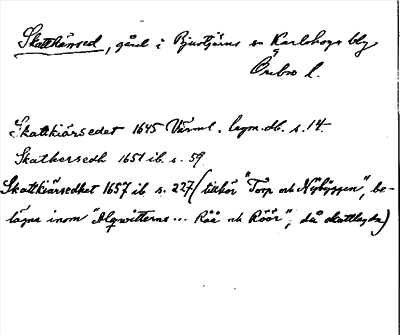 Skattkärsed, gård i Bjurtjärns sn Karlskoga blg
Örebro l.
Skattkiärsedet 1645 Värml. lagm.db. s. 14.
Skatkersedh 1651 ib. s. 59
Skattkiärsedhet 1657 ib s. 227 (tillhör "Torp och Nybyggen", be-
lägna inom "Alqwitterns ... Råå och Röör", då skattlagda)